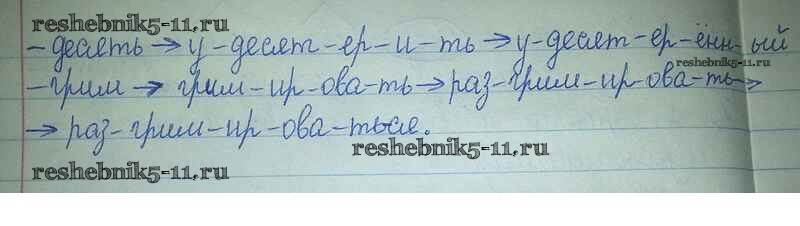 reshebnik5-11.ru
- десять → у-десят-ер-и-ть → у-десят-ер-ённ-ый
reshebnik5-11.ru
- грим → грим-ир-ова-ть → раз-грим-ир-ова-ть →
→ раз-грим-ир-ова-ться.
reshebnik5-11.ru
reshebnik5-11.ru